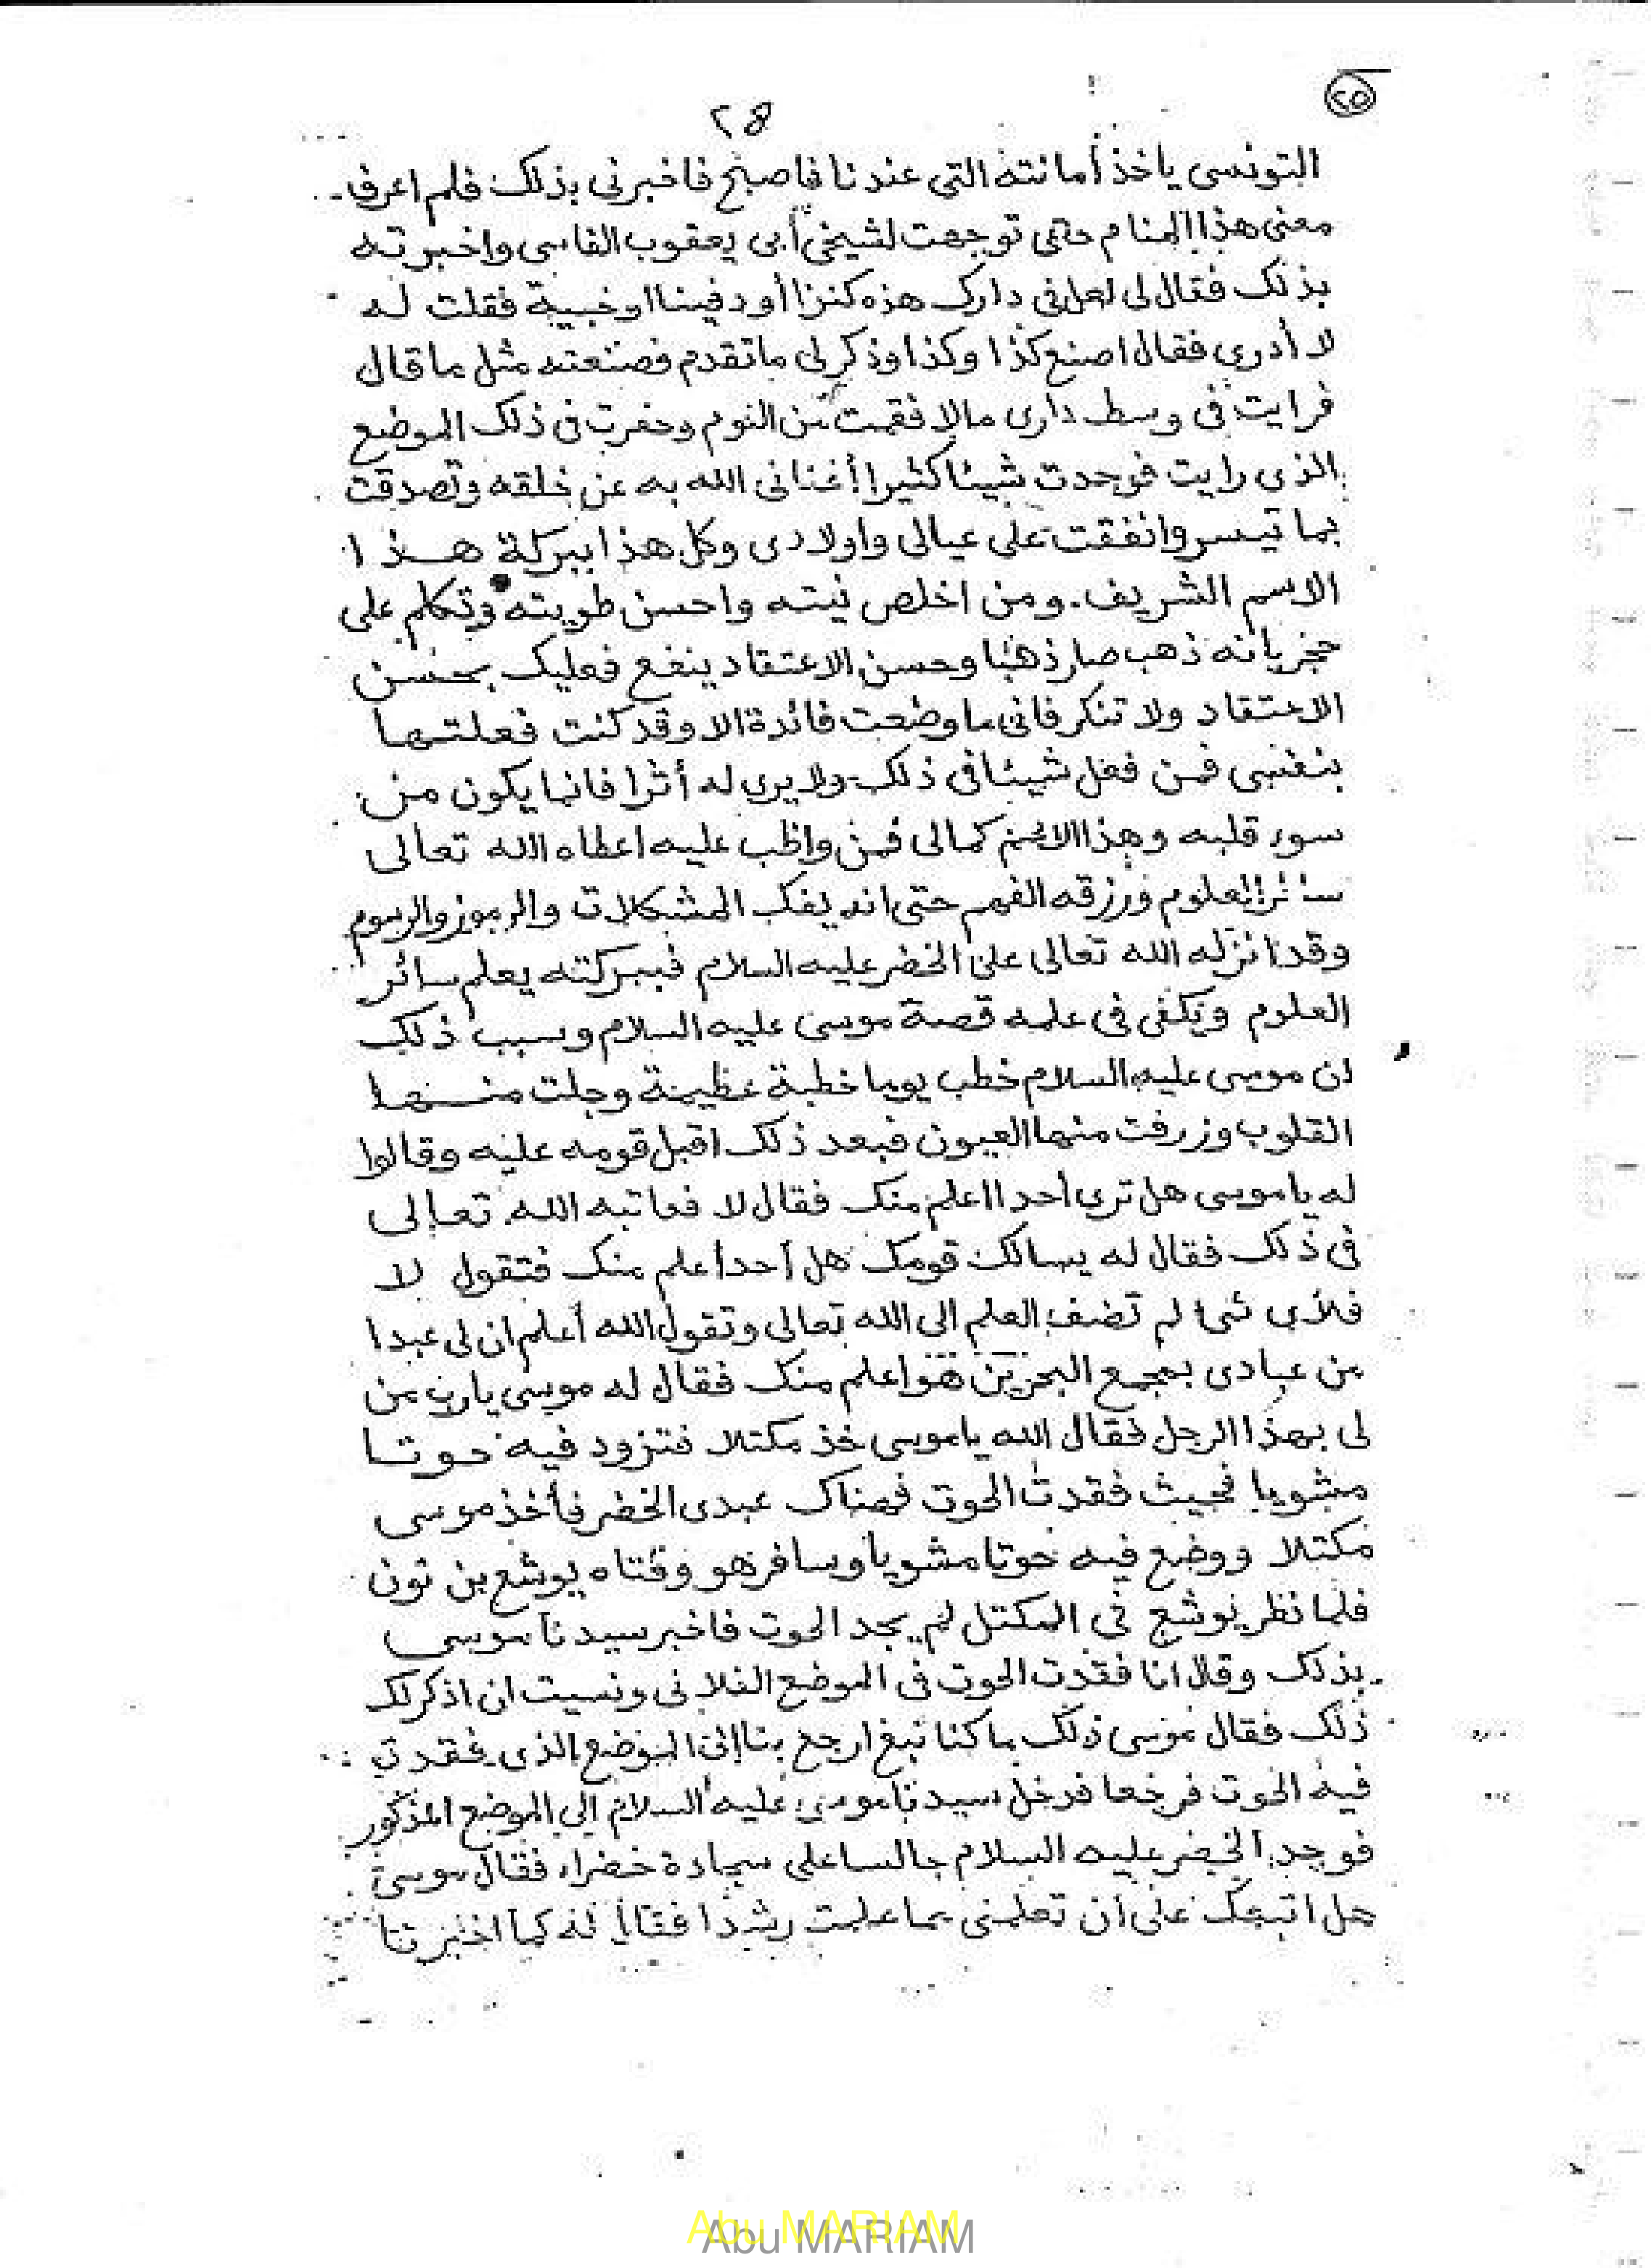 ٢٥
٢٨
التونسى ياخذ أمانته التى عندنا فاصبح فاخبرنى بذلك فلم اعرف
معنى هذا المنام حتى توجهت لشيخى أبى يعقوب الفاسى واخبرته
بذلك فقال لى لعل فى دارك هذه كنزا أو دفينا او خبية فقلت له
لا أدرى فقال اصنع كذا وكذا وذكر لى ما تقدم فصنعته مثل ما قال
فرايت فى وسط دارى مالا فقمت من النوم وحفرت فى ذلك الموضع
الذى رايت فوجدت شيئا كثيرا أغنانى الله به عن خلقه وتصدقت
بما تيسر وانفقت على عيالى واولادى وكل هذا ببركة هذا
الاسم الشريف ومن اخلص نيته واحسن طويته وتكلم على
حجر بانه ذهب صار ذهبا وحسن الاعتقاد ينفع فعليك بحسن
الاعتقاد ولا تنكر فانى ما وضعت فائدة الا وقد كنت فعلتها
بنفسى فمن فعل شيئا فى ذلك ولا يرى له أثرا فانما يكون من
سوء قلبه وهذا الاسم كمالى فمن واظب عليه اعطاه الله تعالى
سائر العلوم ورزقه الفهم حتى انه يفك المشكلات والرموز والرسوم
وقد انزله الله تعالى على الخضر عليه السلام فببركته يعلم سائر
العلوم ويكفى فى علمه قصة موسى عليه السلام وسبب ذلك
ان موسى عليه السلام خطب يوما خطبة عظيمة وجلت منها
القلوب وزرفت منها العيون فبعد ذلك اقبل قومه عليه وقالوا
له يا موسى هل ترى احدا اعلم منك فقال لا فعاتبه الله تعالى
فى ذلك فقال له يسالك قومك هل أحد أعلم منك فتقول لا
فلأى شئ لم تضف العلم الى الله تعالى وتقول الله أعلم ان لى عبدا
من عبادى بمجمع البحرين هو اعلم منك فقال له موسى يارب من
لى بهذا الرجل فقال الله يا موسى خذ مكتلا فتزود فيه حوتا
مشويا فحيث فقدت الحوت فهناك عبدى الخضر فأخذ موسى
مكتلا ووضع فيه حوتا مشويا وسافر هو وفتاه يوشع بن نون
فلما نظر يوشع فى المكتل لم يجد الحوت فاخبر سيدنا موسى
بذلك وقال انا فقدت الحوت فى الموضع الفلانى ونسيت ان اذكر لك
ذلك فقال موسى ذلك ما كنا نبغ ارجع بنا إلى الموضع الذى فقدت
فيه الحوت فرجعا فدخل سيدنا موسى عليه السلام الى الموضع المذكور
فوجد الخضر عليه السلام جالسا على سجادة خضراء فقال موسى
هل اتبعك على ان تعلمنى مما علمت رشدا فقال له كما اخبرنا
Abu MARIAM